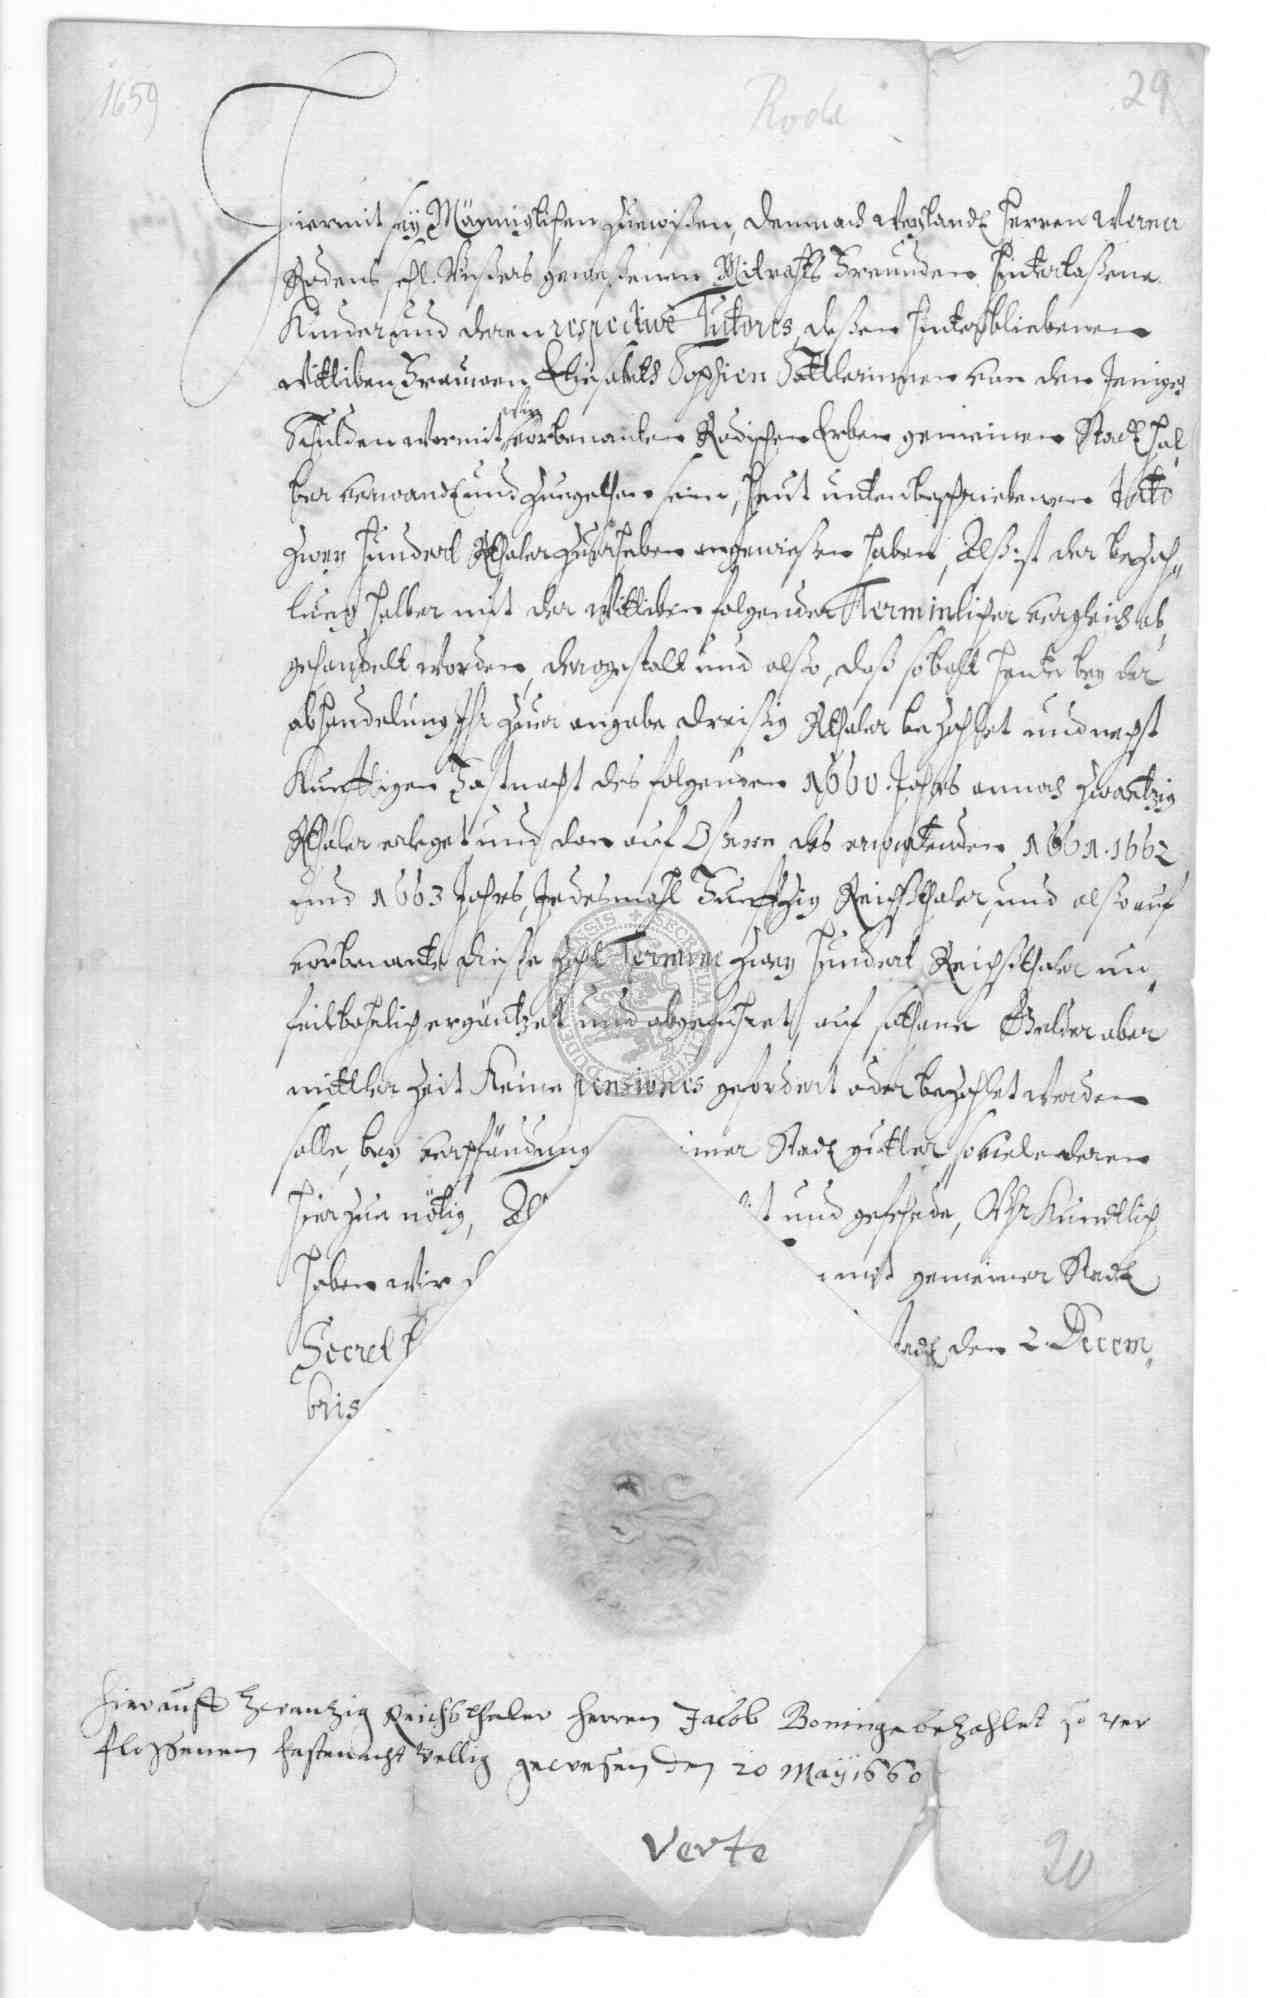 1659
Rode
29
Hiermit sey Männiglichen zuwißen, demnach Weylandt Herren Werner
Rodens sehl. Unsers gewesenen Mitrahts Freunden hinterlaßene
Kinder und deren respective Tutores, deßen hinterbliebenen
Wittiben Frauwen Elisabeth Sophien Sattlerinnen von den Jenigen
Schulden wormit wir vorbenanten Rodischen Erben gemeiner Stadt hal,
ber verwandt und zugethan sein, heut untenbeschriebenen dato
Zwey hundert Rthaler zuerheben angewiesen haben, Alß ist der bezah,,
lung halber mit der Wittiben folgender Terminlicher vergleich ab,
gehandelt worden, dergestalt und also, daß sobalt heute bey der
abhandelung Ihr zur angabe dreißig Rthaler bezahlet und nechst
Kunfftigen Fastnacht des folgenden 1660 Jahrs annoch zwantzig
Rthaler erleget und dan auf Ostern des erwartenden 1661. 1662
und 1663 Jahrs, Jedesmahl Funffzig Reichsthaler, und also auf
vorbenante diese Termine Zwey hundert Reichsthaler un,,
feilbahrlich ergäntzet und abgeführet, auf sothane Gelder aber
mittler Zeit Keine pensiones gefordert oder bezahlet werden
solle, bey verpfändung iner Stadt gütter so viel deren
hierzu nötig, und gefehrde, Uhrkundtlich
haben wir d mit gemeiner Stadt
Secret tadt den 2. Decem,,
bris
SECRETUM
hierauff Zwantzig Reichsthaler herren Jacob Boninge bezahlet so ver
floßenen fastenacht vellig gewesen den 20 Maij 1660
verte
20